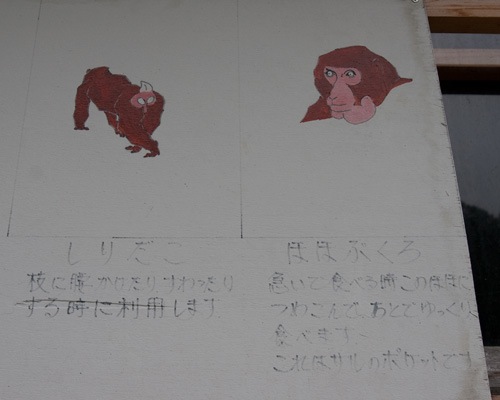 しりだこ
枝に腰かけたりすわったり
する時に利用します
ほほぶくろ
急いで食べる時このほほに
つめこんで、あとでゆっくり
食べます
これはサルのポケットです